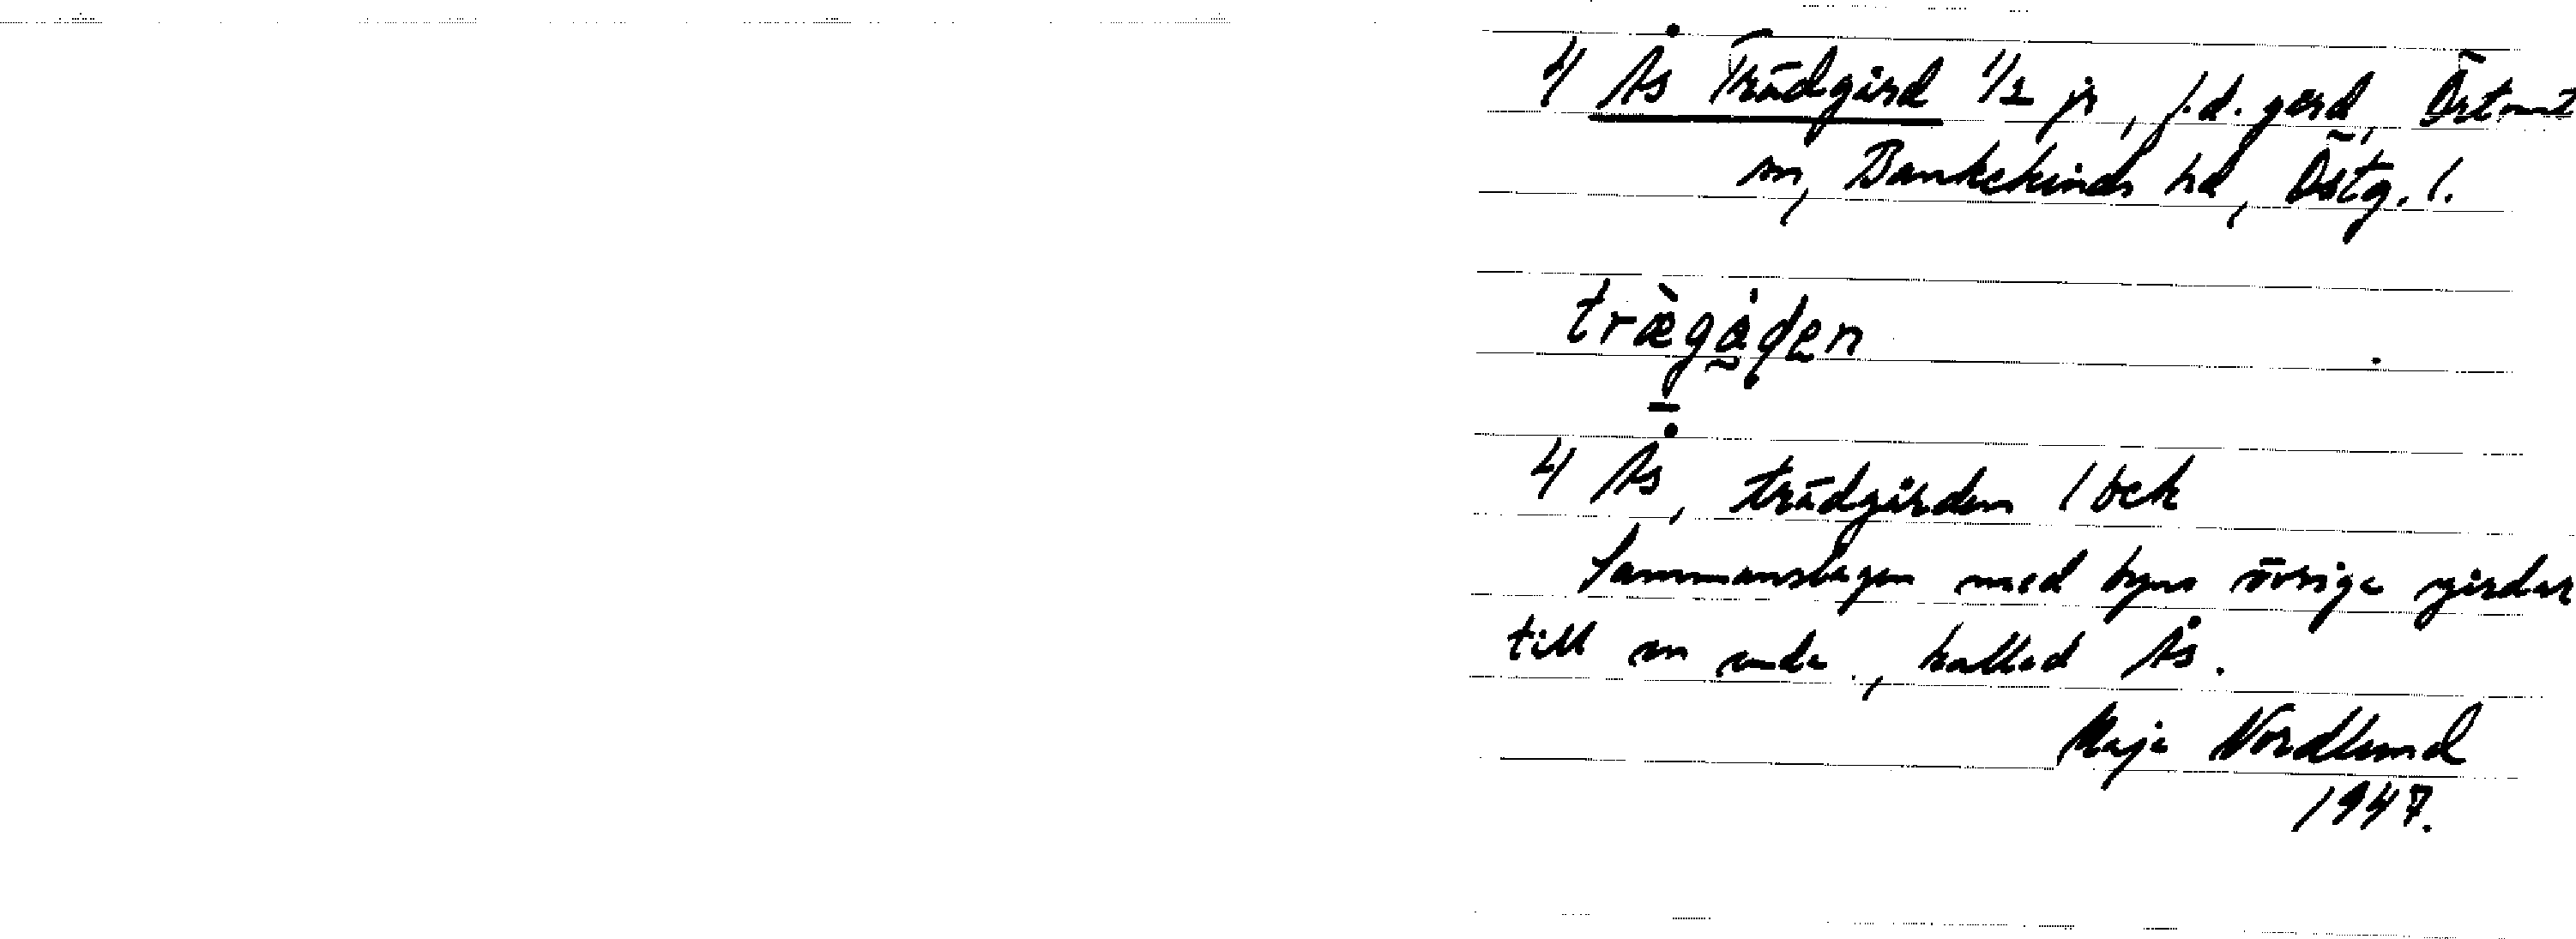 4/ Ås Trädgård 1/2 jr, f.d. gård, Örtomt
sn, Bankekinds hd, Östg. l.
træ̀gå̊ḍen
4/ Ås, trädgården / bek
Sammanslagen med byns övriga gårdar
till en enda, kallad Ås.
Maja Nordlund
1947.